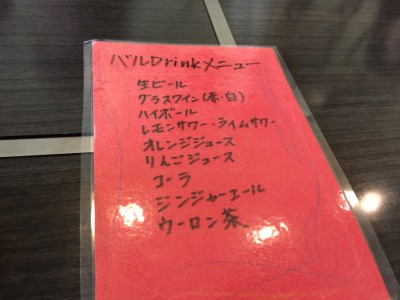 バルDrinkメニュー
生ビール
グラスワイン(赤・白)
ハイボール
レモンサワー・ライムサワー
オレンジジュース
りんごジュース
コーラ
ジンジャーエール
ウーロン茶